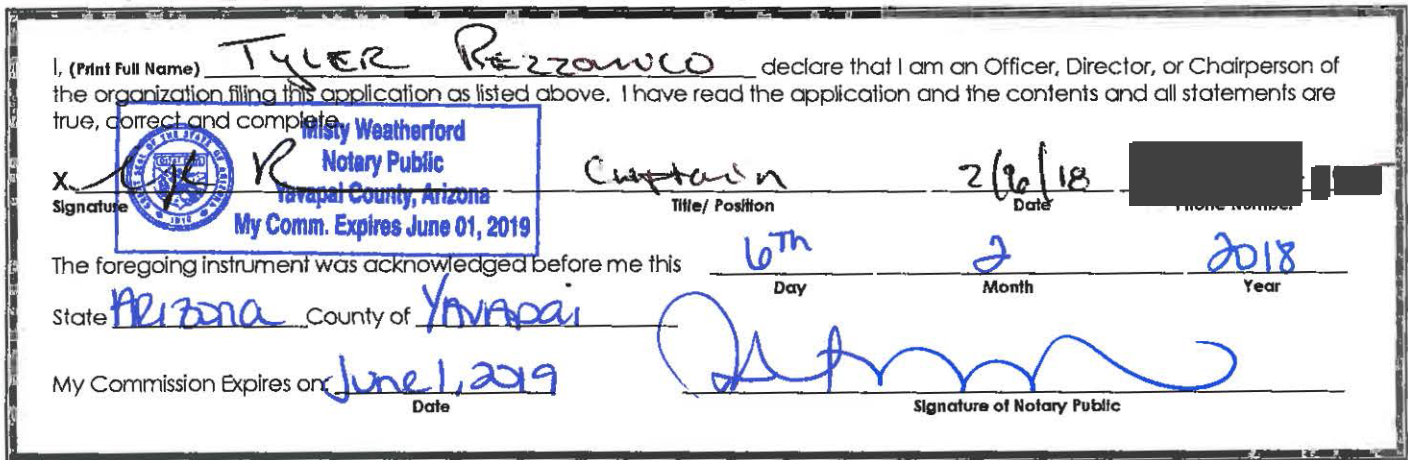 I, (Print Full Name) TYLER REZZONICO declare that I am an Officer, Director, or Chairperson of
the organization filing this application as listed above. I have read the application and the contents and all statements are
true, correct and complete.
Misty Weatherford
Notary Public
Yavapai County, Arizona
My Comm. Expires June 01, 2019
X
Captain 2/6/18
Signature Title/ Position Date Phone Number
The foregoing instrument was acknowledged before me this 6Th 2 2018
Day Month Year
State ARIZONA County of YAVAPAI
My Commission Expires on: June 1, 2019
Date Signature of Notary Public